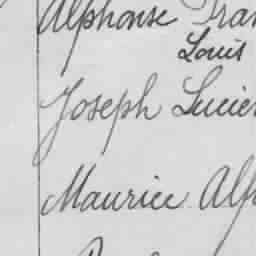 Alphonse Fran
Louis
Joseph Lucien
Maurice Alp